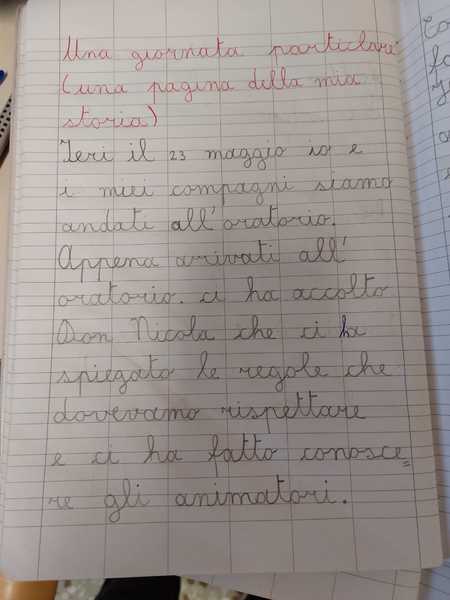 Una giornata particlari
(una pagina della mia
storia)
Ieri il 23 maggio io e
i miei compagni siamo
andati all'oratorio.
Appena arrivati all'
oratorio. ci ha accolto
Don Nicola che ci ha
spiegato le regole che
dovevamo rispettare
e ci ha fatto conosce=
re gli animatori.